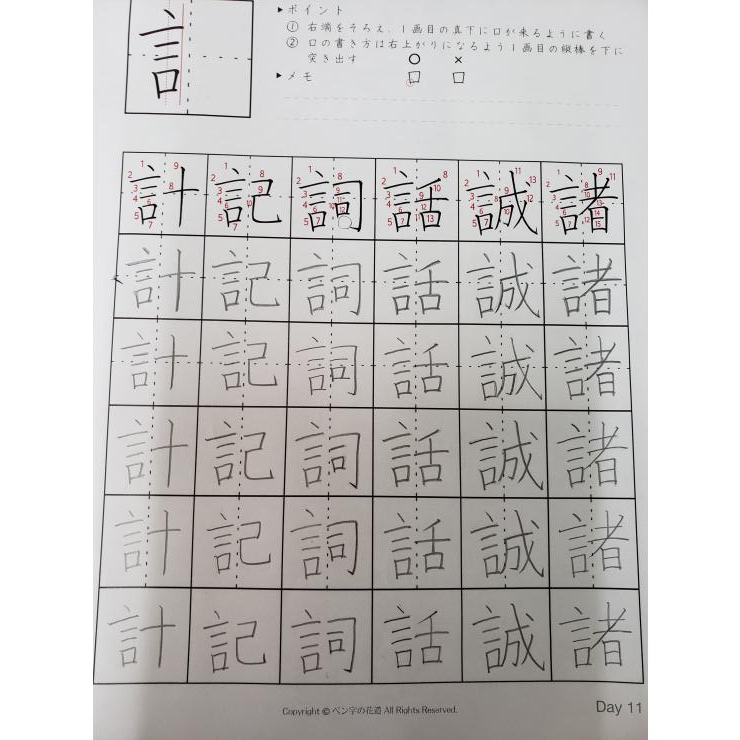 ▶ポイント
① 右端をそろえ、1画目の真下に口が来るように書く
② 口の書き方は右上がりになるよう1画目の縦棒を下に
突き出す ○ ×
▶メモ 口 口
言
計 記 詞 話 誠 諸
計 記 詞 話 誠 諸
計 記 詞 話 誠 諸
計 記 詞 話 誠 諸
計 記 詞 話 誠 諸
計 記 詞 話 誠 諸
Copyright © ペン字の花道 All Rights Reserved.
Day 11